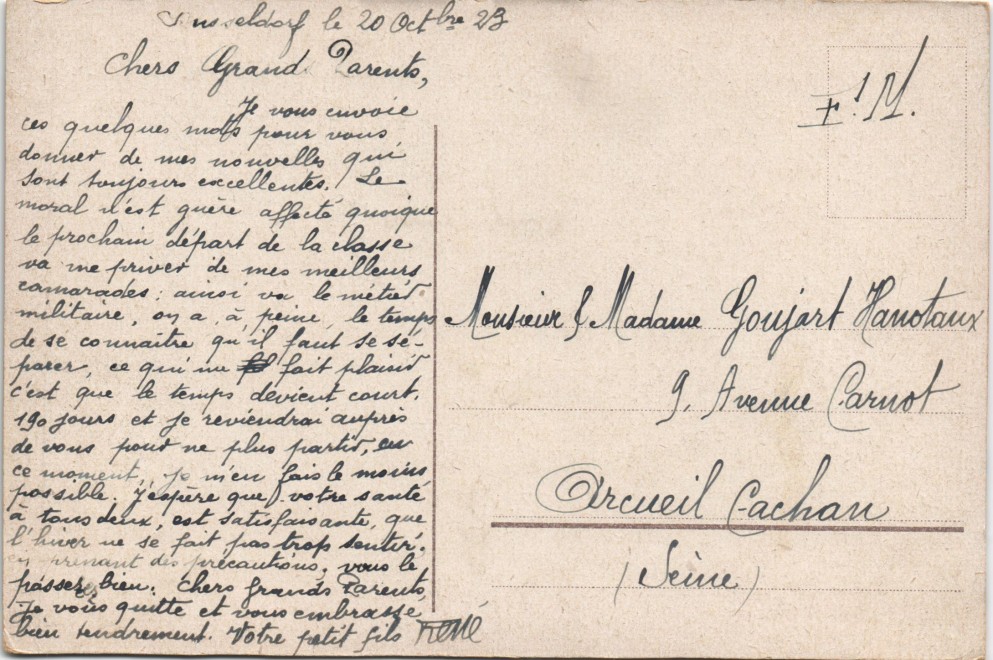 Dusseldorf le 20 Octbre 23
Chers Grand Parents,
Je vous envoie
ces quelques mots pour vous
donner de mes nouvelles qui
sont toujours excellentes. Le
moral n'est guère affecté quoique
le prochain départ de la classe
va me priver de mes meilleurs
camarades; ainsi va le métier
militaire, on a, à peine, le temps
de se connaître qu'il faut se sé-
parer, ce qui me fait plaisir
c'est que le temps devient court.
190 jours et je reviendrai auprès
de vous pour ne plus partir, en
ce moment, je m'en fais le moins
possible. J'espère que votre santé
à tous deux, est satisfaisante, que
l'hiver ne se fait pas trop sentir,
en prenant des précautions, vous le
passerez bien. Chers Grands Parents,
Je vous quitte et vous embrasse
bien tendrement. Votre petit fils René
F.M.
Monsieur & Madame Goujart Hanotaux
9, Avenue Carnot
Arcueil Cachan
(Seine)